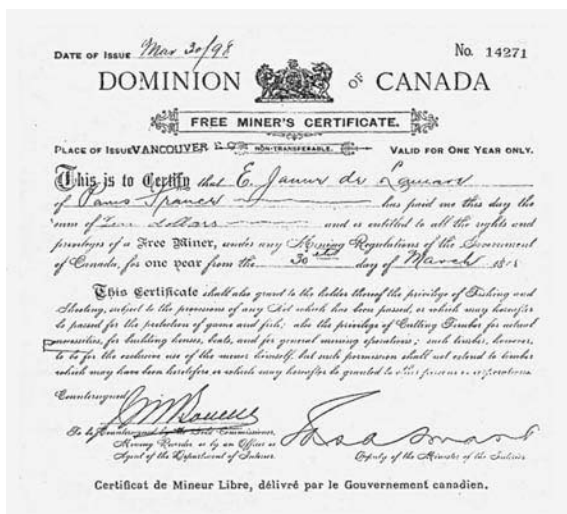 DATE OF ISSUE Mar 30/98 No. 14271
DOMINION OF CANADA
FREE MINER'S CERTIFICATE.
PLACE OF ISSUE VANCOUVER B.C. NON-TRANSFERABLE. VALID FOR ONE YEAR ONLY.
This is to Certify that E. Janne de
of Paris France has paid me this day the
sum of Ten dollars and is entitled to all the rights and
privileges of a Free Miner, under any Mining Regulations of the Government
of Canada, for one year from the 30 day of March 1898
This Certificate shall also grant to the holder thereof the privilege of Fishing and
Shooting, subject to the provisions of any Act which has been passed, or which may hereafter
be passed for the protection of game and fish; also the privilege of Cutting Timber for actual
necessities, for building houses, boats, and for general mining operations; such timber, however,
to be for the exclusive use of the miner himself, but such permission shall not extend to timber
which may have been heretofore or which may hereafter be granted to other persons or corporations.
Countersigned
To be Countersigned by the Gold Commissioner,
Mining Recorder or by an Officer or
Agent of the Department of Interior.
Deputy of the Minister of the Interior
Certificat de Mineur Libre, délivré par le Gouvernement canadien.